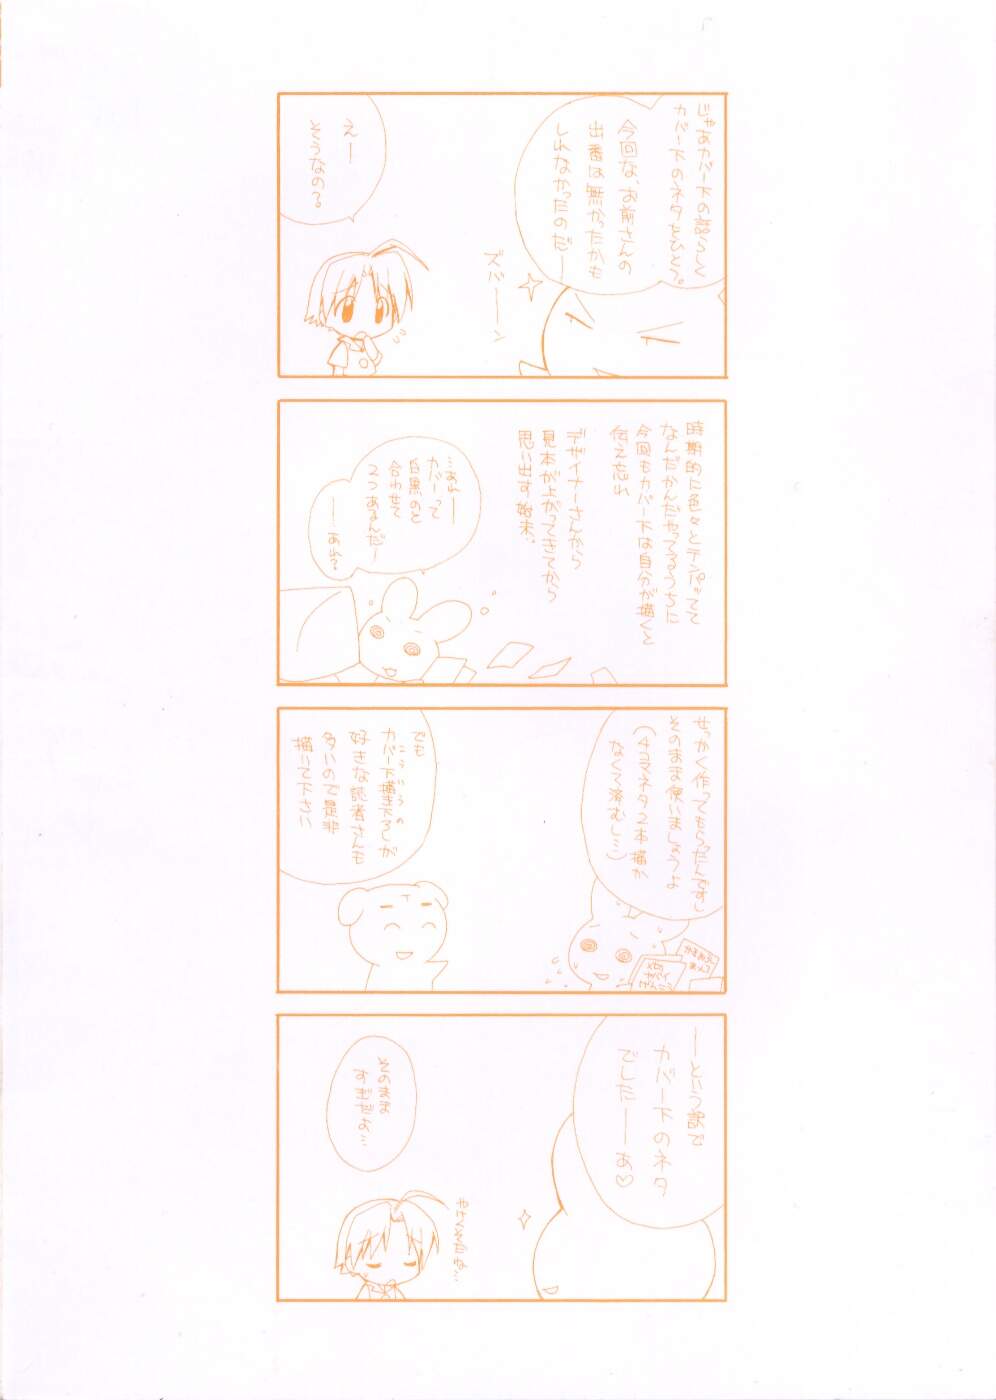 じゃあカバー下の話らしく
カバー下のネタをひとつ。
今回な、お前さんの
出番は無かったかも
しれなかったのだー
ズバーーン
えー
そうなの?
時期的に色々とテンパッてて
なんだかんだやってるうちに
今回もカバー下は自分が描くと
伝え忘れ
デザイナーさんから
見本が上がってきてから
思い出す始末。
…あれー
カバーって
白黒のと
合わせて
2つあるんだー
ーーあれ?
せっかく作ってもらったんですし
そのまま使いましょうよ
(4コマネタ2本描か
なくて済むし…)
でも
こういうの
カバー下描き下ろしが
好きな読者さんも
多いので是非
描いて下さい
ーーという訳で
カバー下のネタ
でしたーーぁ♡
そのまま
すぎだよ…
やけくそだね…